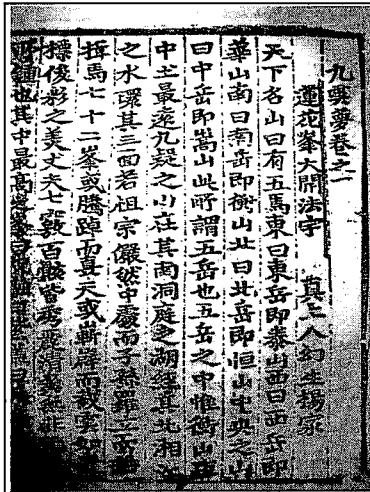 九雲夢卷之一
蓮花峯大開法宇 真上人幻生楊家
天下名山曰有五焉東曰東岳即泰山西曰西岳即
華山南曰南岳即衡山北曰北岳即恒山中央之山
曰中岳即嵩山此所謂五岳也五岳之中惟衡山距
中土最遠九疑之山在其南洞庭之湖經其北湘江
之水環其三面若祖宗儼然中處而子孫羅立而
拱焉七十二峯或騰踔而矗天或嶄嶭而截雲如
標俊彩之美丈夫七竅百骸皆秀麗清爽無非
鍾也其中最高